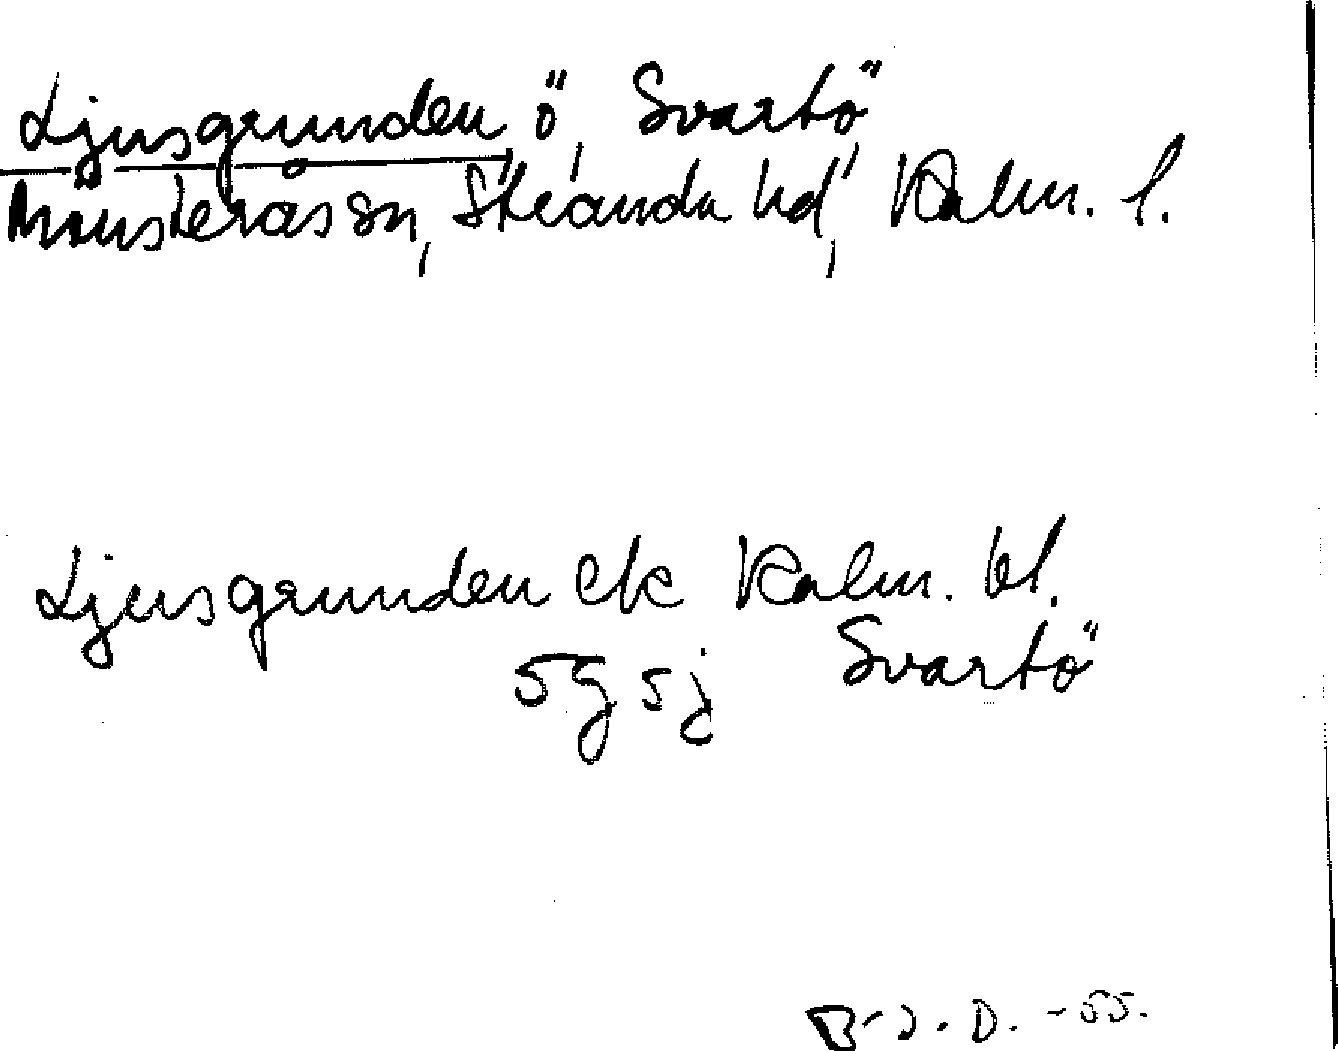 Ljusgrunden, ö, Svartö
Mönsterås sn, Stranda hd, Kalm. l.
Ljusgrunden ek Kalm. bl.
5g 5j Svartö
B-J. D. -55.